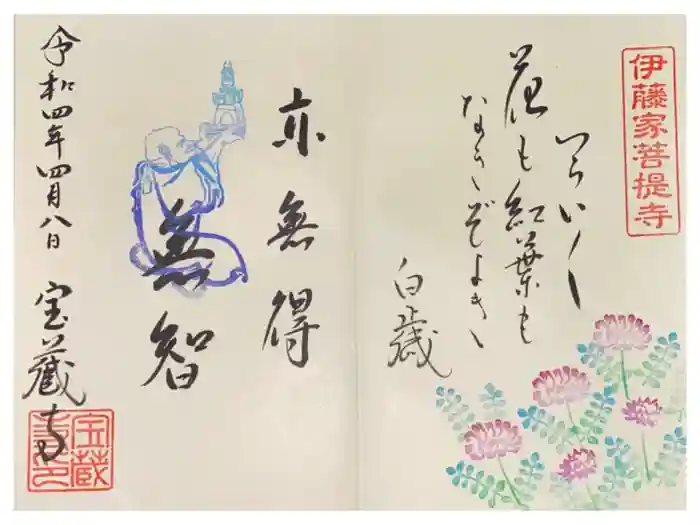 伊藤家菩提寺
花も紅葉も
なきぞよき
白歳
亦無得
無智
令和四年四月八日
宝蔵寺
宝蔵
寺印